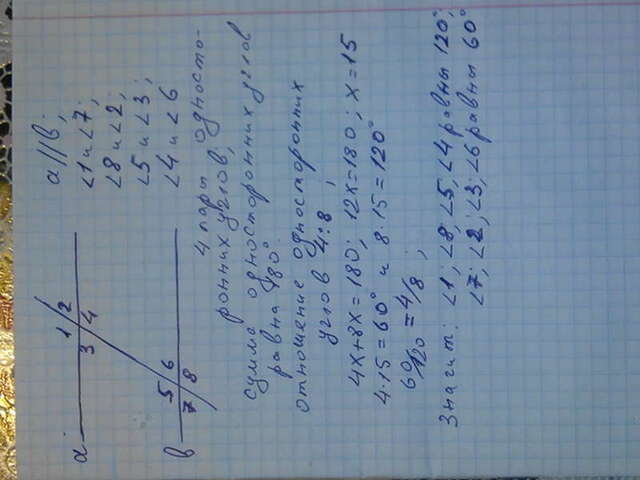 a // b;
∠1 и ∠7;
∠8 и ∠2;
∠5 и ∠3;
∠4 и ∠6
a
1 2
3 4
b
5 6
7 8
4 пары односто-
ронних углов;
сумма односторонних углов
равна 180°
отношение односторонних
углов 4:8 ;
4x+8x=180; 12x=180; x=15
4·15=60° и 8·15=120°
60/120 = 4/8 ;
Значит: ∠1; ∠8; ∠5; ∠4 равны 120°;
∠7; ∠2; ∠3; ∠6 равны 60°